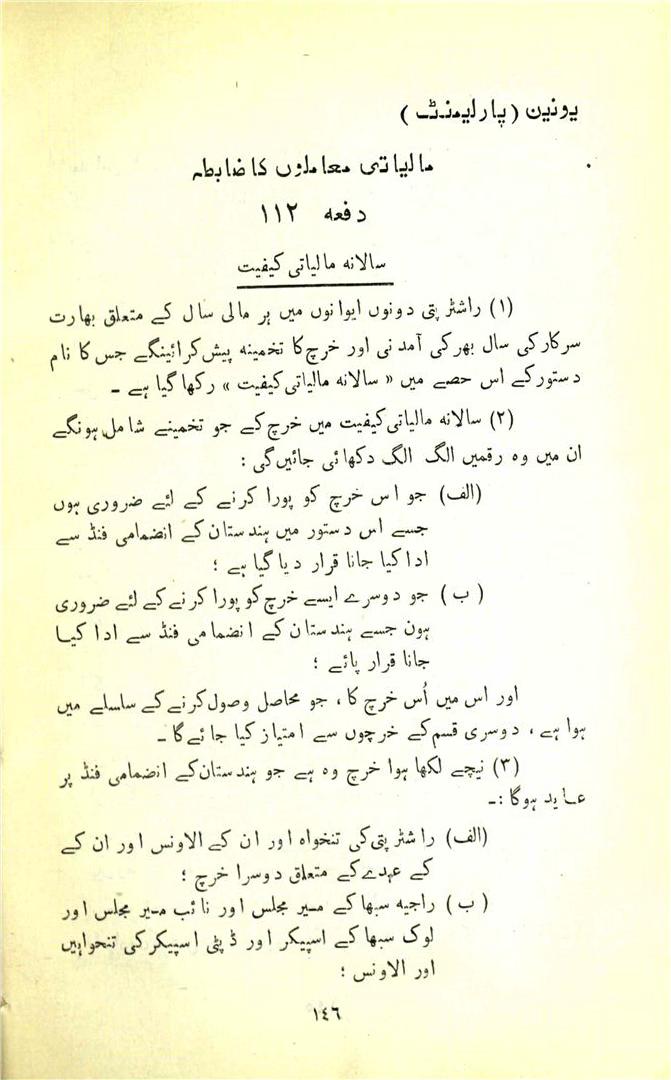 یونین (پارلیمنٹ)
مالیاتی معاملوں کا ضابطہ
دفعہ ۱۱۲
سالانہ مالیاتی کیفیت
(۱) راشٹر پتی دونوں ایوانوں میں ہر مالی سال کے متعلق بھارت
سرکار کی سال بھر کی آمدنی اور خرچ کا تخمینہ پیش کرائینگے جس کا نام
دستور کے اس حصے میں «سالانہ مالیاتی کیفیت» رکھا گیا ہے ۔
(۲) سالانہ مالیاتی کیفیت میں خرچ کے جو تخمینے شامل ہونگے
ان میں وہ رقمیں الگ الگ دکھائی جائیں گی :
(الف) جو اس خرچ کو پورا کرنے کے لئے ضروری ہوں
جسے اس دستور میں ہندستان کے انضمامی فنڈ سے
ادا کیا جانا قرار دیا گیا ہے ؛
(ب) جو دوسرے ایسے خرچ کو پورا کرنے کے لئے ضروری
ہون جسے ہندستان کے انضمامی فنڈ سے ادا کیا
جانا قرار پائے ؛
اور اس میں اُس خرچ کا ، جو محاصل وصول کرنے کے سلسلے میں
ہوا ہے ، دوسری قسم کے خرچوں سے امتیاز کیا جائے گا ۔
(۳) نیچے لکھا ہوا خرچ وہ ہے جو ہندستان کے انضمامی فنڈ پر
عاید ہوگا :۔
(الف) راشٹر پتی کی تنخواہ اور ان کے الاونس اور ان کے
کے عہدے کے متعلق دوسرا خرچ ؛
(ب) راجیہ سبھا کے میر مجلس اور نائب میر مجلس اور
لوک سبھا کے اسپیکر اور ڈپٹی اسپیکر کی تنخواہیں
اور الاونس ؛
۱٤٦